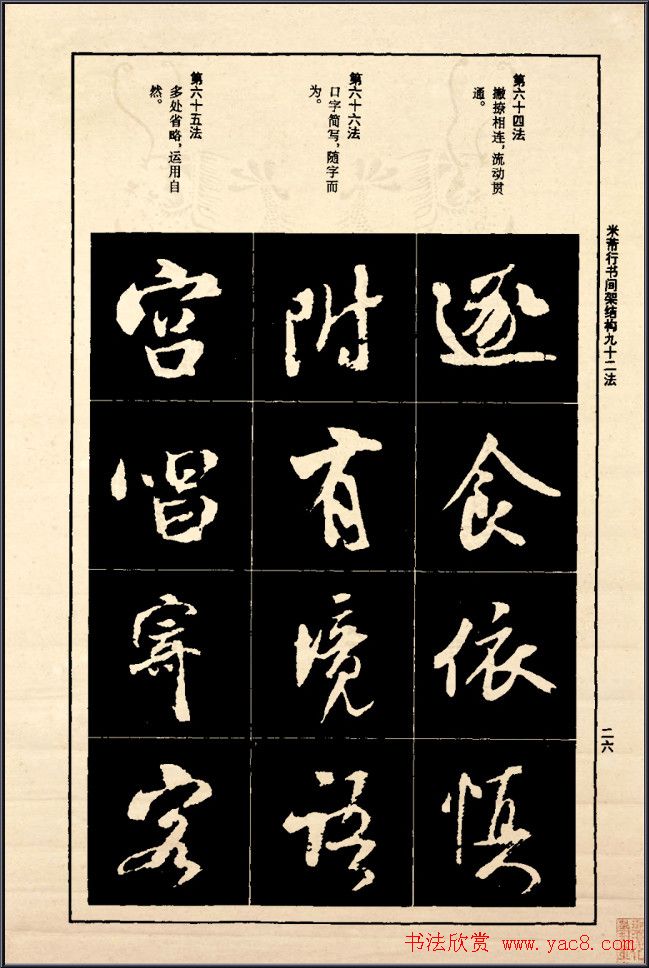 米芾行书间架结构九十二法
二六
第六十四法
撇捺相连,流动贯
通。
第六十六法
口字简写,随字而
为。
第六十五法
多处省略,运用自
然。
逐食依慎
附有境語
宫唱寄客
书法欣赏 www.yac8.com